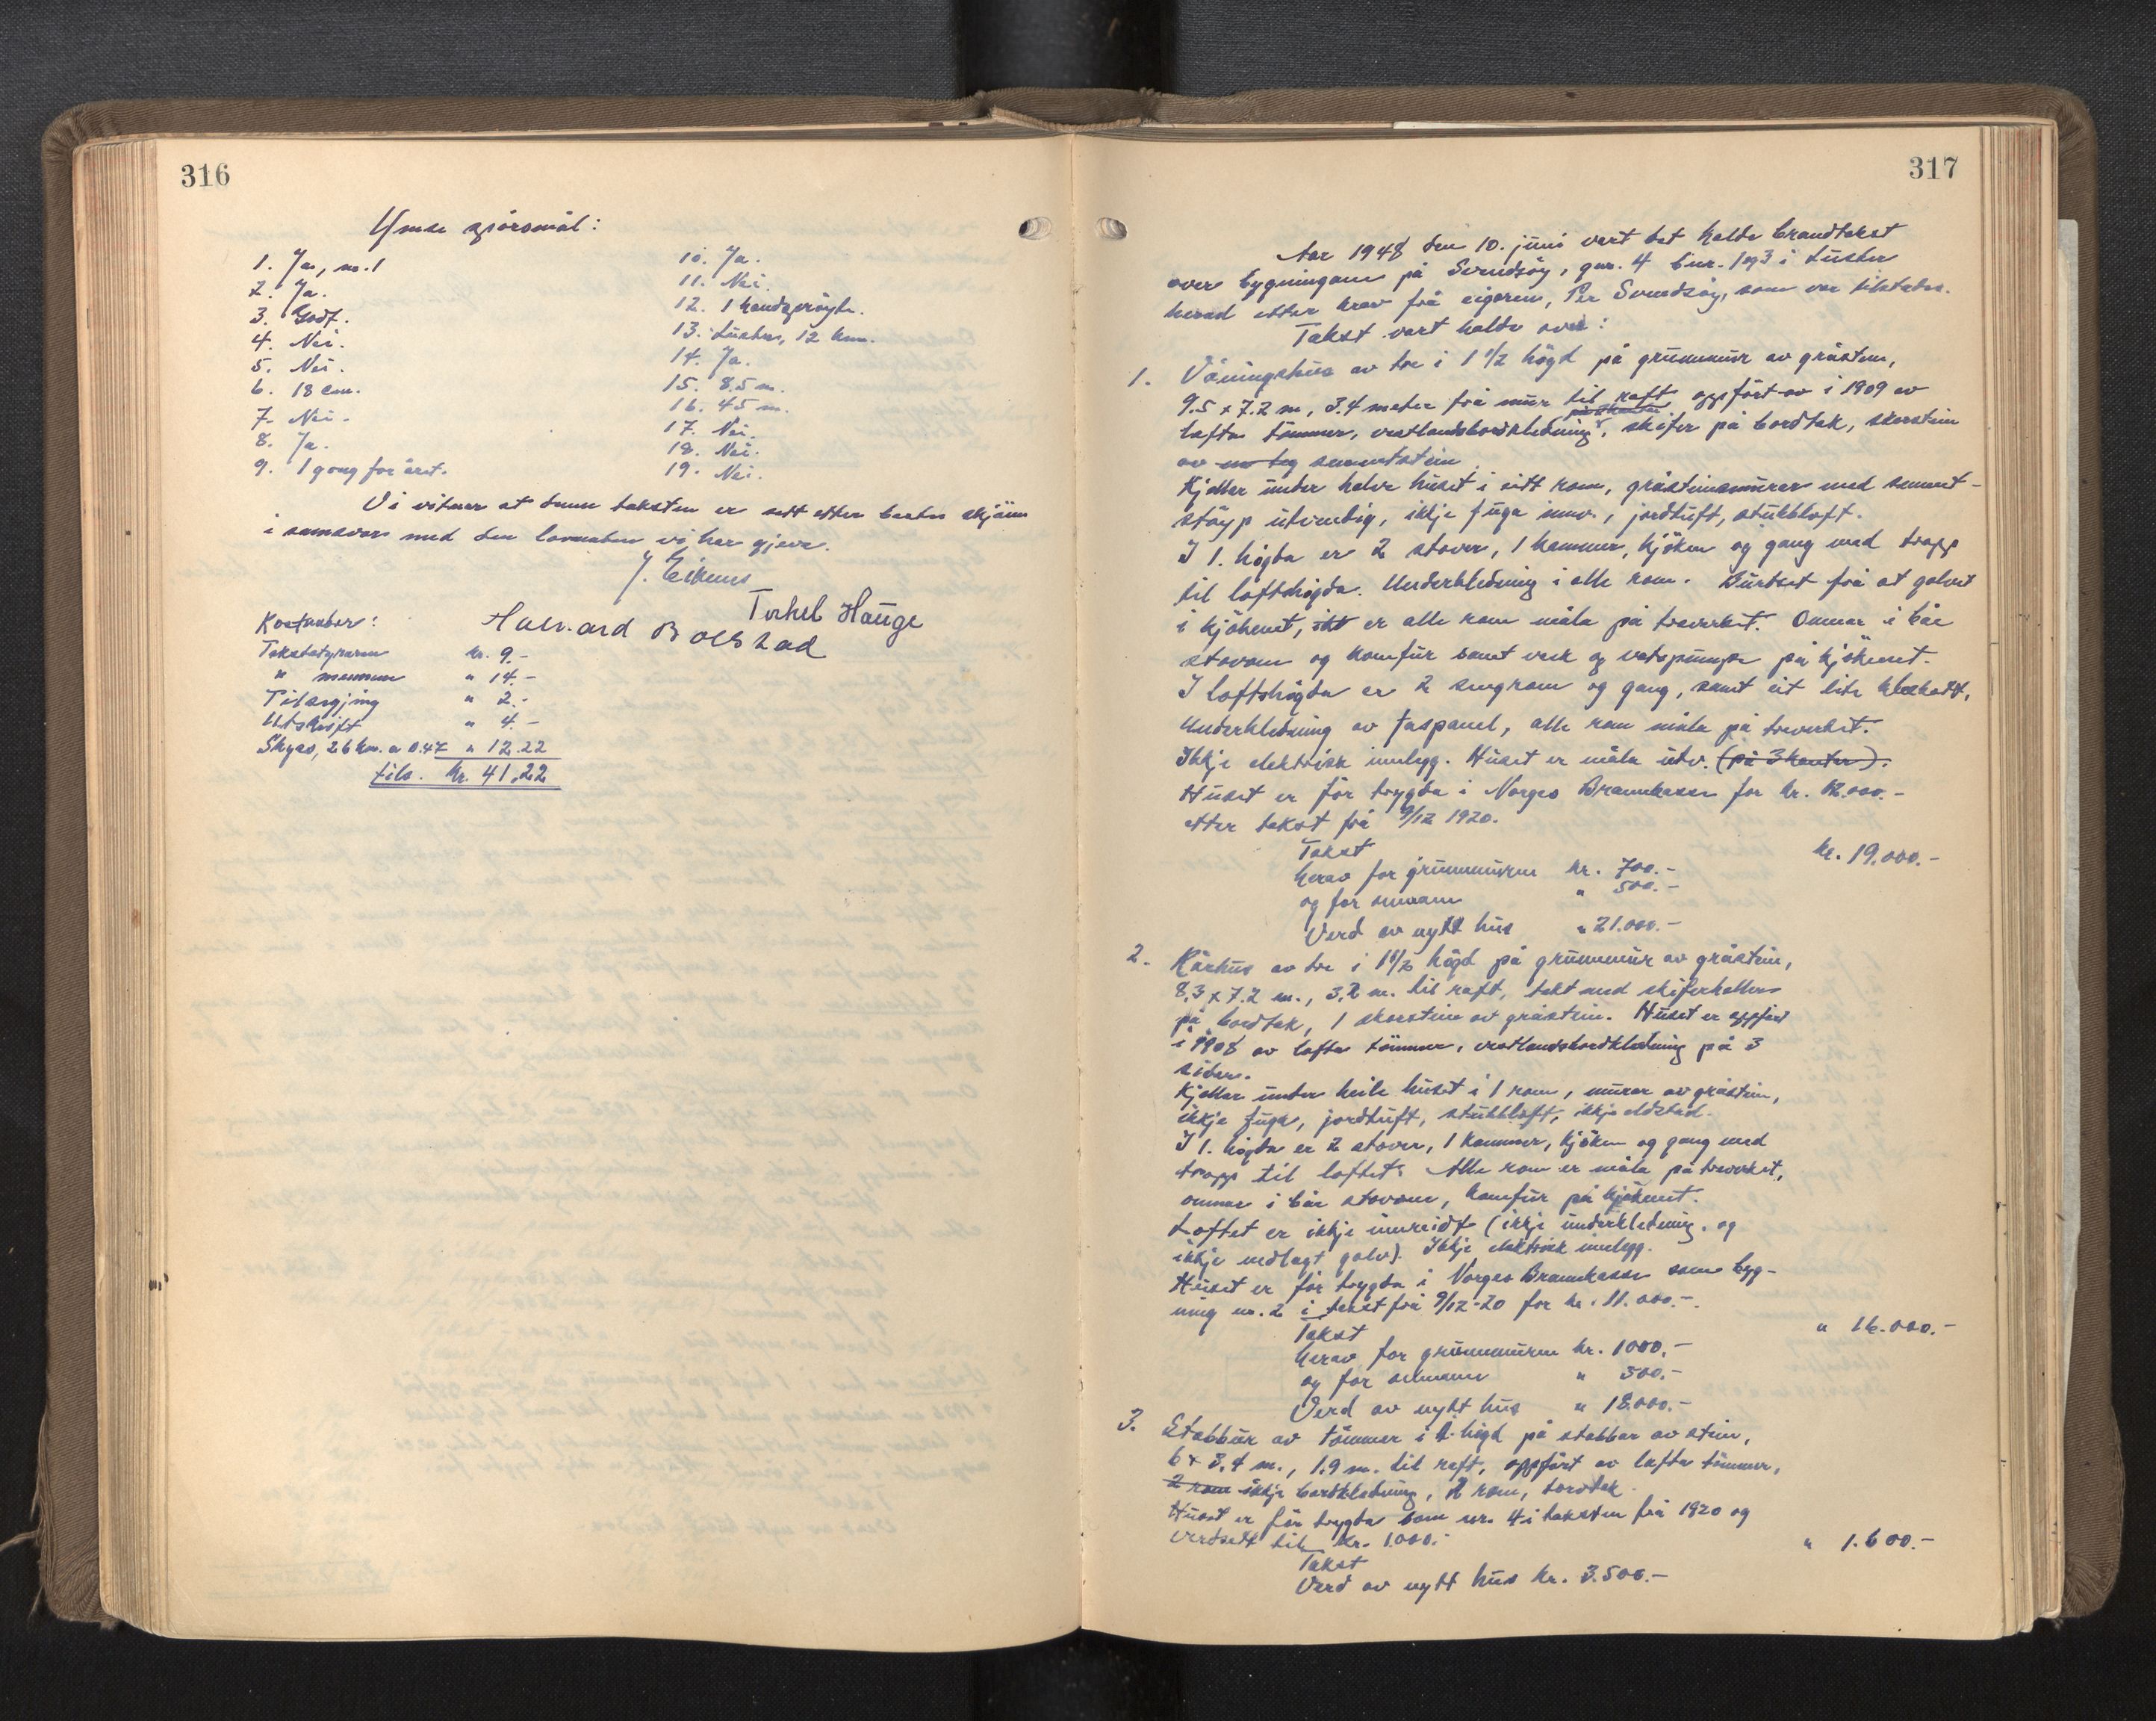 316
Ymse spörsmål:
1. Ja, nr. 1
2. Ja.
3. Godt.
4. Nei.
5. Nei.
6. 18 cm.
7. Nei.
8. Ja.
9. 1 gong for året.
10. Ja.
11. Nei.
12. 1 handspröyte.
13. Luster, 12 km.
14. Ja.
15. 8.5 m.
16. 45 m.
17. Nei.
18. Nei.
19. Nei.
Vi vitner at denne taksten er sett etter beste skjönn
i samsvar med den lovnaden vi har gjeve.
J. Eikenes
Torkel Hauge
Halvard Bolstad
Kostnader:
Takststyraren kr. 9.-
" mennene " 14.-
Tilsegjing " 2.-
Utskrift " 4.-
Skyss, 26 km. a 0.47 " 12.22
tils. kr. 41.22
317
Aar 1948 den 10. juni vart det halde brandtakst
over bygningane på Svendsöy, gnr. 4 bnr. 1 og 3 i Luster
herad etter krav frå eigaren, Per Svendsöy, som var tilstades.
Takst vart halde over:
1. Våningshus av tre i 1 1/2 högd på grunnmur av gråstein,
9.5 x 7.2 m, 3.4 meter frå mur til raft oppfört av i 1909 av
lafta tömmer, vestlandsbordkledning, skifer på bordtak, skorstein
av sementstein
Kjellar under halve huset i eitt rom, gråsteinsmurer med sement-
stöyp utvendig, ikkje fuga innv., jordtuft, stubbloft.
I 1. högda er 2 stover, 1 kammer, kjöken og gang med trapp
til loftshögda. Underkledning i alle rom. Burtset frå at golvet
i kjökenet, er alle rom måla på treverket. Omnar i båe
stovone og komfur samt vask og vatspumpe på kjökenet.
I loftshögda er 2 sengrom og gang, samt eit lite kleskott,
Underkledning av faspanel, alle rom måla på treverket.
Ikkje elektrisk innlegg. Huset er måla utv. (på 3 kanter).
Huset er för trygda i Norges Brannkasse for kr. 12.000.-
etter takst frå 9/12 1920.
Takst kr. 19.000.-
herav for grunnmuren kr. 700.-
og for omnane " 500.-
Verd av nytt hus " 21.000.-
2. Kårhus av tre i 1 1/2 högd på grunnmur av gråstein,
8.3 x 7.2 m., 3.2 m. til raft, tekt med skiferheller
på bordtak, 1 skorstein av gråstein. Huset er oppfört
i 1908 av lafta tömmer, vestlandsbordkledning på 3
sider.
Kjellar under heile huset i 1 rom, murer av gråstein,
ikkje fuga, jordtuft, stubbloft, ikkje eldstad.
I 1. högda er 2 stover, 1 kammer, kjöken og gang med
trapp til loftet. Alle rom er måla på treverket,
omnar i båe stovone, komfur på kjökenet.
Loftet er ikkje innreidt (ikkje underkledning, og
ikkje nedlagt golv). Ikkje elektrisk innlegg.
Huset er för trygda i Norges Brannkasse som byg-
ning nr. 2 i takst frå 9/12-20 for kr. 11.000.-
Takst " 16.000.-
herav for grunnmuren kr. 1000.-
og for omnane " 500.-
Verd av nytt hus " 18.000.-
3. Stabbur av tömmer i 1 högd på stabbar av stein,
6 x 3.4 m., 1.9 m. til raft, oppfört av lafta tömmer,
2 rom ikkje bordkledning, 2 rom, torvtak.
Huset er för trygda som nr. 4 i taksten frå 1920 og
verdsett til kr. 1.000.-
Takst " 1.600.-
Verd av nytt hus kr. 3.500.-